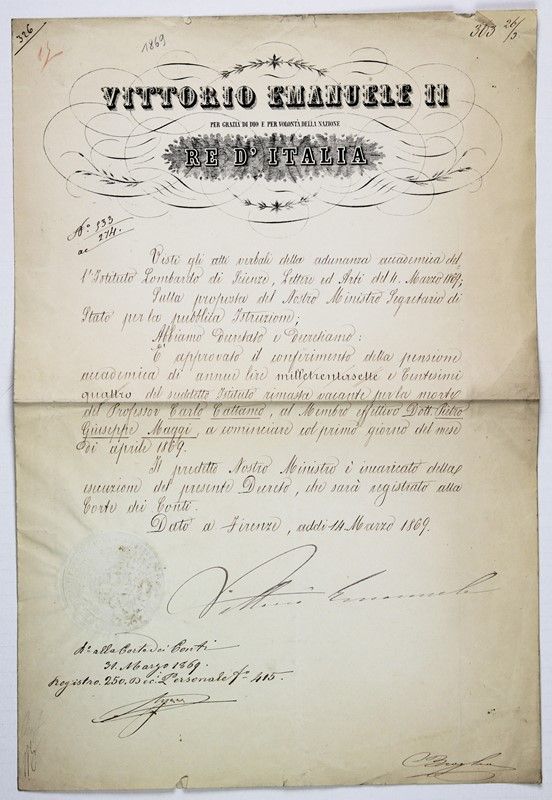 326
1869
303 26/3
VITTORIO EMANUELE II
PER GRAZIA DI DIO E PER VOLONTÀ DELLA NAZIONE
RE D'ITALIA
N.º 533
274.
Visti gli atti verbali della adunanza accademica del
l'Istituto Lombardo di Scienze, Lettere ed Arti del 4. Marzo 1869;
Sulla proposta del Nostro Ministro Segretario di
Stato per la pubblica Istruzione;
Abbiamo Decretato e Decretiamo:
È approvato il conferimento della pensione
accademica di annue lire milletrentasette e Centesimi
quattro del suddetto Istituto rimasta vacante per la morte
del Professor Carlo Cattaneo, al Membro effettivo Dott. Pietro
Giuseppe Maggi, a cominciare col primo giorno del mese
di aprile 1869.
Il predetto Nostro Ministro è incaricato della
esecuzione del presente Decreto, che sarà registrato alla
Corte dei Conti.
Dato a Firenze, addì 14 Marzo 1869.
Vittorio Emanuele
R.º alla Corte dei Conti
31. Marzo 1869.
Registro. 250. Dec. Personale f.º 415.